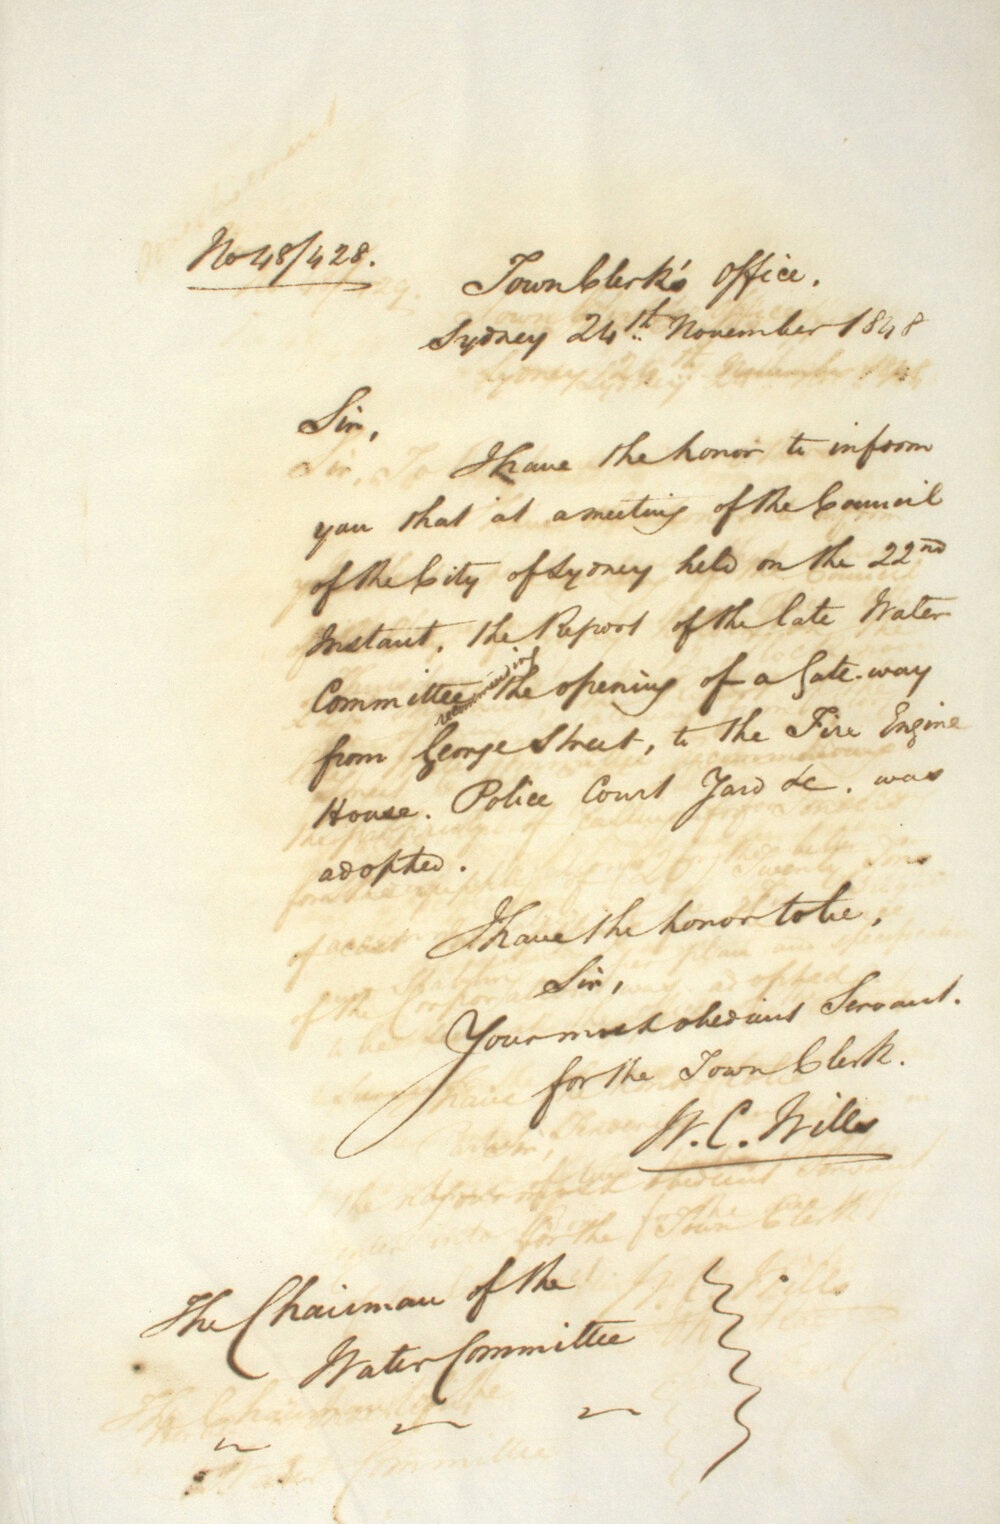 No 48/428.
Town Clerk's Office.
Sydney 24th November 1848
Sir,
I have the honor to inform
you that at a meeting of the Council
of the City of Sydney held on the 22nd
Instant, the Report of the late Water
Committee recommending the opening of a Gate-way
from George Street, to the Fire Engine
House. Police Court Yard &c. was
adopted.
I have the honor to be,
Sir,
Your most obedient Servant.
for the Town Clerk.
W. C. Wills
The Chairman of the
Water Committee